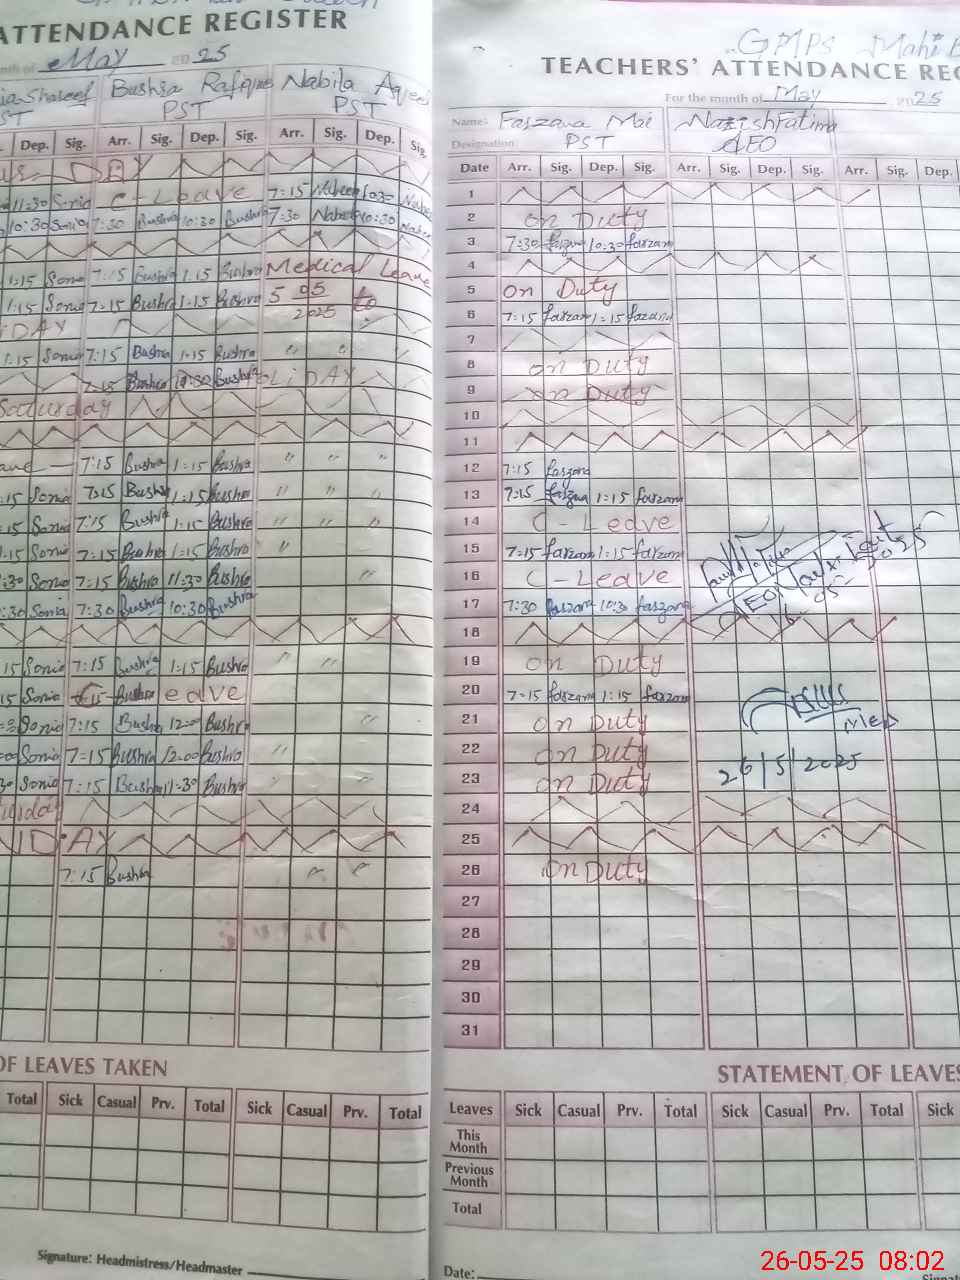 ATTENDANCE REGISTER
nth of May 2025
ia Shareef Bushra Rafique Nabila Aqee
ST PST PST
Dep. Sig. Arr. Sig. Dep. Sig. Arr. Sig. Dep. Sig.
DAY
11:30 Sonia C-Leave 7:15 10:30
10:30 Sonia 7:30 Bushra 10:30 Bushra 7:30 Nabila 10:30
1:15 Sonia 7:15 Bushra 1:15 Bushra Medical Leave
1:15 Sonia 7:15 Bushra 1:15 Bushra 5 05 2025 to
IDAY
1:15 Sonia 7:15 Bushra 1:15 Bushra " " "
7:15 Bushra Bushra OLiDAY
Saturday
7:15 Bushra 1:15 Bushra " " "
:15 Sonia 7:15 Bushra 1:15 Bushra " " "
:15 Sonia 7:15 Bushra 1:15 Bushra " " "
1:15 Sonia 7:15 Bushra 1:15 Bushra "
:30 Sonia 7:15 Bushra 11:30 Bushra "
:30 Sonia 7:30 Bushra 10:30 Bushra
15 Sonia 7:15 Bushra 1:15 Bushra " "
15 Sonia Bushra eave
Sonia 7:15 Bushra 12:00 Bushra "
Sonia 7:15 Bushra 12:00 Bushra "
30 Sonia 7:15 Bushra 11:30 Bushra
IDAY
7:15 Bushra " "
OF LEAVES TAKEN
Total Sick Casual Prv. Total Sick Casual Prv. Total
Signature: Headmistress/Headmaster
GMPS Mahi
TEACHERS' ATTENDANCE REG
For the month of May 2025
Name: Farzana Mai Nazish Fatima
Designation PST AEO
Date Arr. Sig. Dep. Sig. Arr. Sig. Dep. Sig. Arr. Sig. Dep.
1
2 on Duty
3 7:30 farzana 10:30 farzana
4
5 on Duty
6 7:15 farzana 1:15 farzana
7
8 on Duty
9 on Duty
10
11
12 7:15 farzana
13 7:15 farzana 1:15 farzana
14 C-Leave
15 7:15 farzana 1:15 farzana
16 C-Leave
17 7:30 farzana 10:30 farzana
18
19 on Duty
20 7:15 farzana 1:15 farzana
21 on Duty
22 on Duty
23 on Duty 26/5/2025
24
25
26 on Duty
27
28
29
30
31
STATEMENT OF LEAVES
Leaves Sick Casual Prv. Total Sick Casual Prv. Total Sick
This Month
Previous Month
Total
Date:
26-05-25 08:02